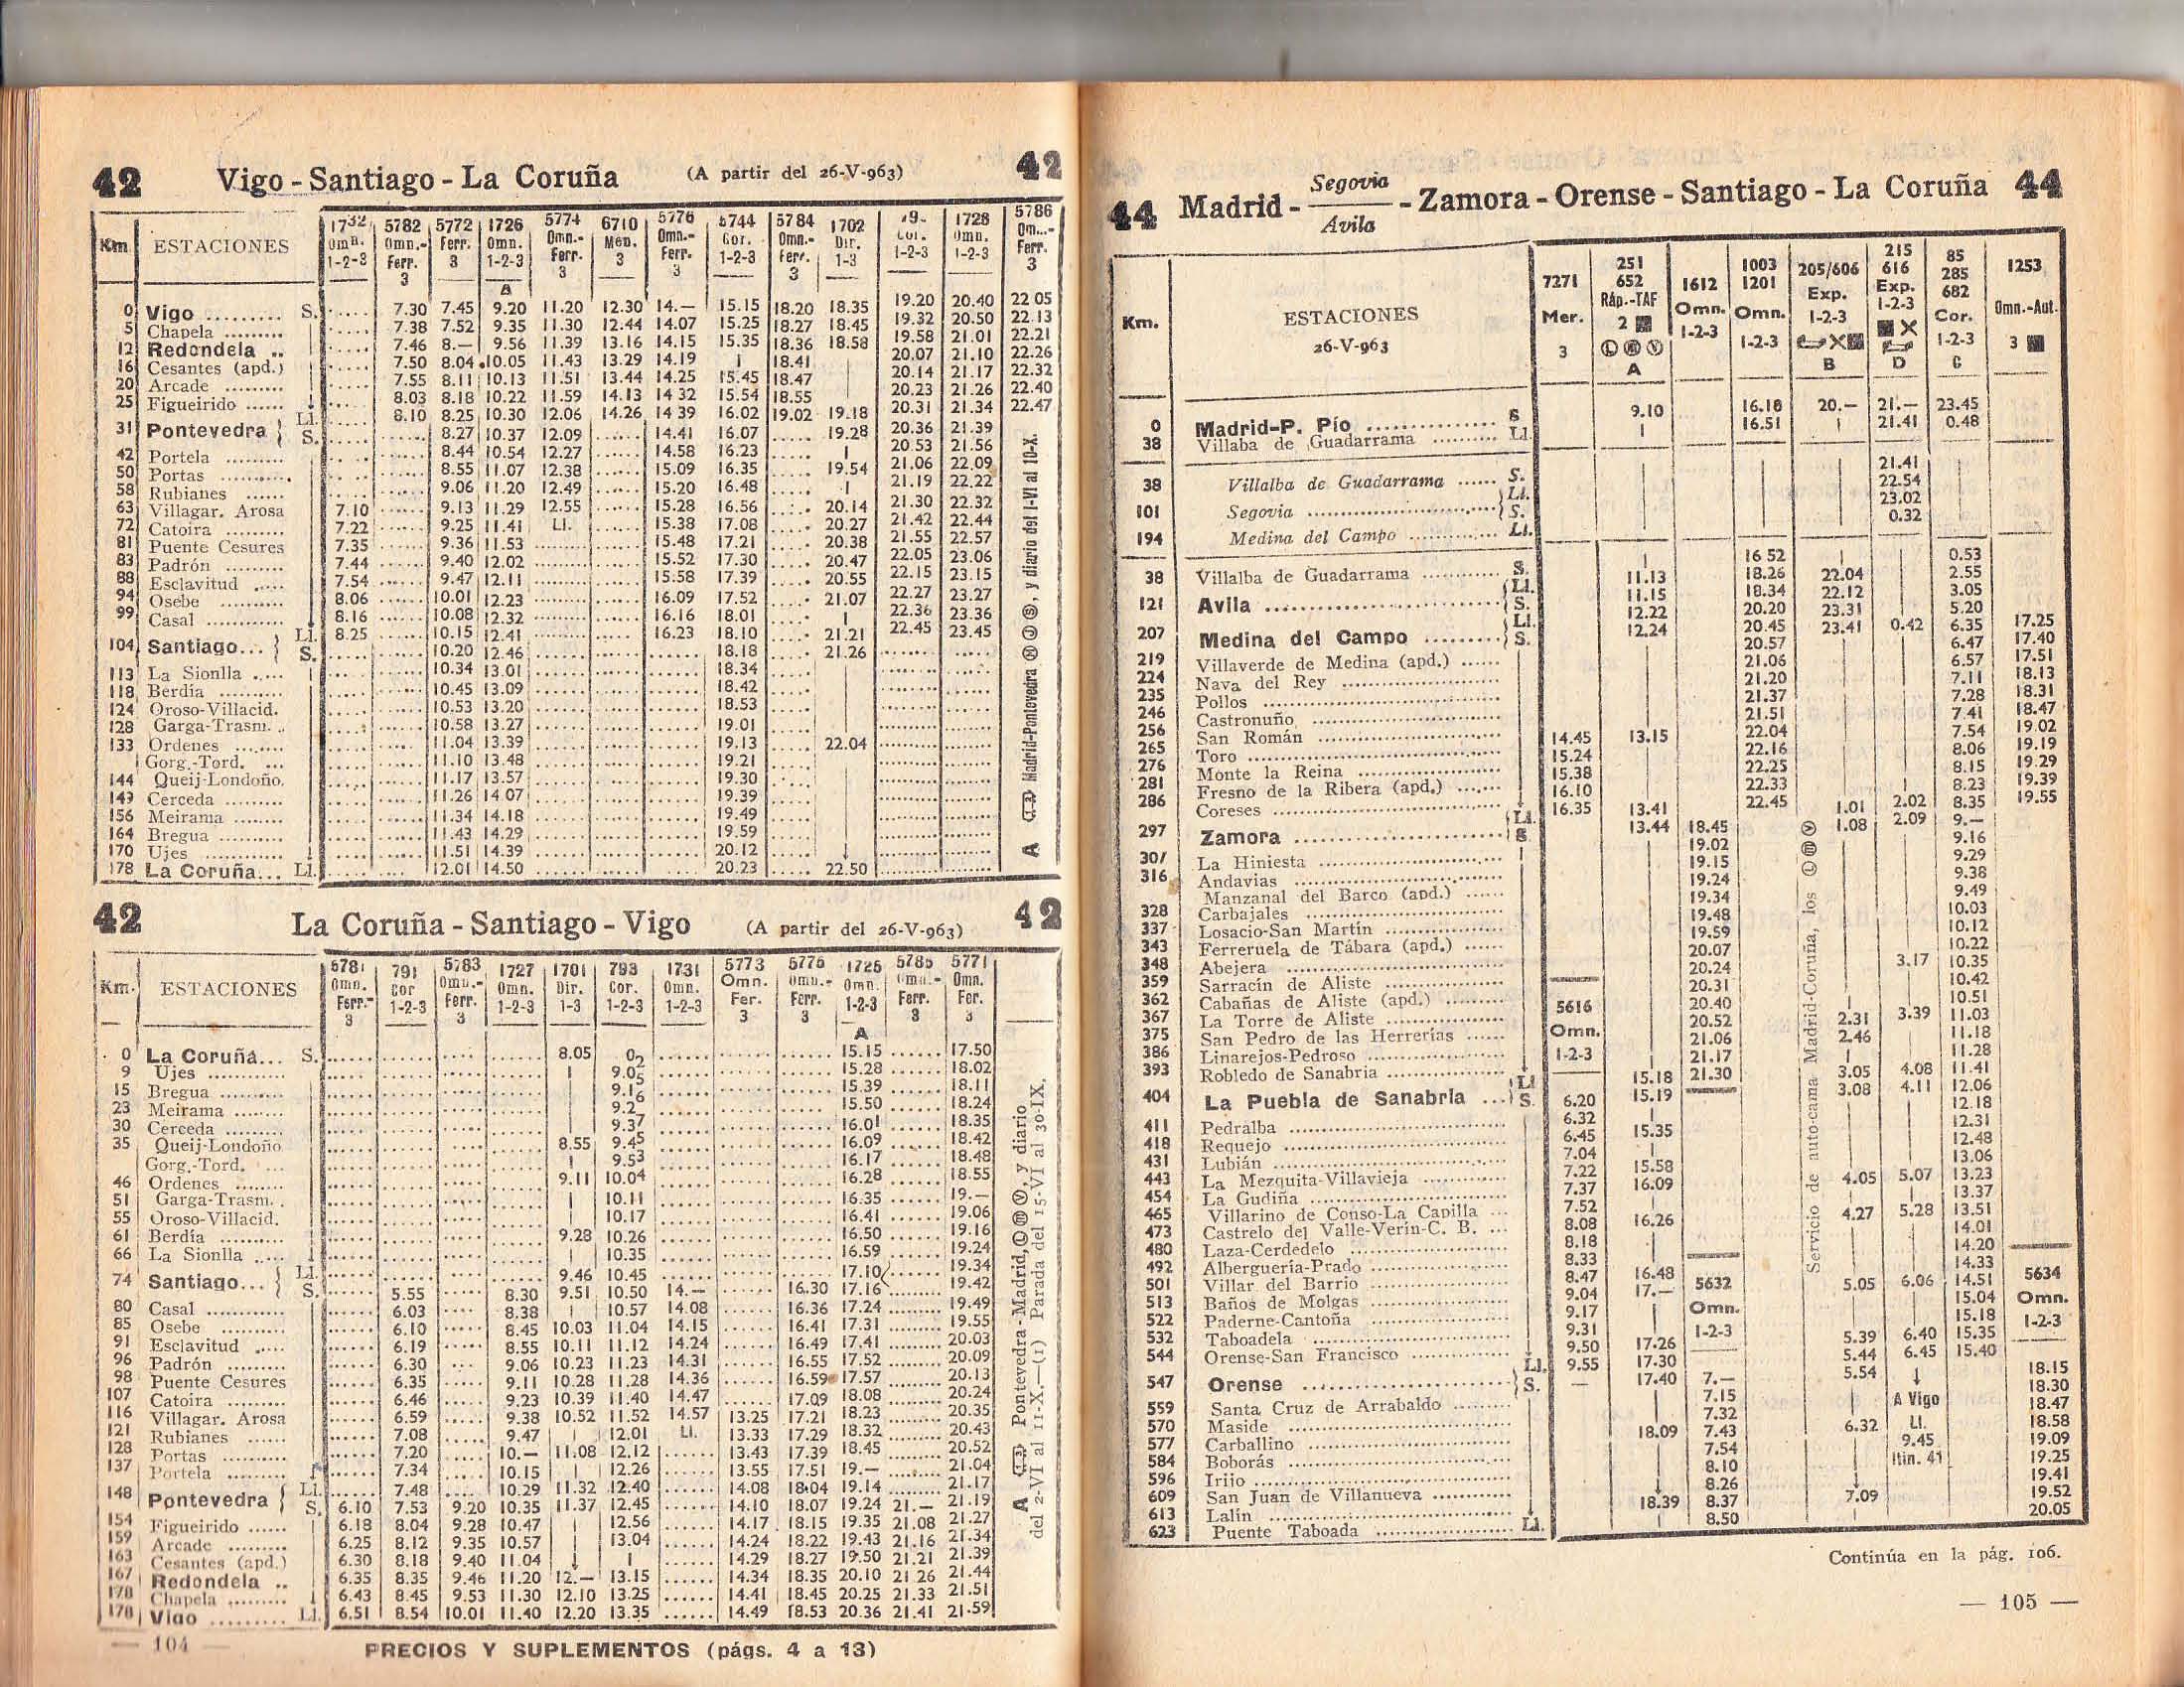 42 Vigo - Santiago - La Coruña (A partir del 26-V-963) 42
Km. ESTACIONES 1732 5782 5772 1726 5774 6710 5776 5744 5784 1702 1728 5786
Omn. Omn.- Ferr. Omn. Omn.- Men. Omn.- Cor. Omn.- Dir. Omn. Ferr.
1-2-3 Ferr. 3 1-2-3 Ferr. 3 Ferr. 1-2-3 Ferr. 1-3 1-2-3 1-2-3 3
0 Vigo S. 7.30 7.45 9.20 11.20 12.30 14.— 15.15 18.20 18.35 19.20 20.40 22 05
5 Chapela 7.38 7.52 9.35 11.30 12.44 14.07 15.25 18.27 18.45 19.32 20.50 22 13
12 Redondela 7.46 8.— 9.56 11.39 13.16 14.15 15.35 18.36 18.58 19.58 21.01 22.21
16 Cesantes (apd.) 7.50 8.04 10.05 11.43 13.29 14.19 18.41 20.07 21.10 22.26
20 Arcade 7.55 8.11 10.13 11.51 13.44 14.25 15.45 18.47 20.14 21.17 22.32
25 Figueirido 8.03 8.18 10.22 11.59 14.13 14 32 15.54 18.55 20.23 21.26 22.40
31 Pontevedra Ll. 8.10 8.25 10.30 12.06 14.26 14 39 16.02 19.02 19.18 20.31 21.34 22.47
S. 8.27 10.37 12.09 14.41 16.07 19.28 20.36 21.39
42 Portela 8.44 10.54 12.27 14.58 16.23 20.53 21.56
50 Portas 8.55 11.07 12.38 15.09 16.35 19.54 21.06 22.09
58 Rubianes 9.06 11.20 12.49 15.20 16.48 21.19 22.22
63 Villagar. Arosa 7.10 9.13 11.29 12.55 15.28 16.56 20.14 21.30 22.32
72 Catoira 7.22 9.25 11.41 Ll. 15.38 17.08 20.27 21.42 22.44
81 Puente Cesures 7.35 9.36 11.53 15.48 17.21 20.38 21.55 22.57
83 Padrón 7.44 9.40 12.02 15.52 17.30 20.47 22.05 23.06
88 Esclavitud 7.54 9.47 12.11 15.58 17.39 20.55 22.15 23.15
94 Osebe 8.06 10.01 12.23 16.09 17.52 21.07 22.27 23.27
99 Casal 8.16 10.08 12.32 16.16 18.01 22.36 23.36
104 Santiago Ll. 8.25 10.15 12.41 16.23 18.10 21.21 22.45 23.45
S. 10.20 12.46 18.18 21.26
113 La Sionlla 10.34 13.01 18.34
118 Berdía 10.45 13.09 18.42
124 Oroso-Villacid. 10.53 13.20 18.53
128 Garga-Trasm. 10.58 13.27 19.01
133 Ordenes 11.04 13.39 19.13 22.04
Gorg.-Tord. 11.10 13.48 19.21
144 Queij-Londoño. 11.17 13.57 19.30
149 Cerceda 11.26 14 07 19.39
156 Meirama 11.34 14.18 19.49
164 Bregua 11.43 14.29 19.59
170 Ujes 11.51 14.39 20.12
178 La Coruña... Ll. 12.01 14.50 20.23 22.50
A Madrid-Pontevedra, y diario del 1-VI al 10-X.
42 La Coruña - Santiago - Vigo (A partir del 26-V-963) 42
Km. ESTACIONES 5781 791 5783 1727 1701 793 1731 5773 5775 1725 5785 5771
Omn. Cor Omn.- Omn. Dir. Cor. Omn. Omn. Omn.- Omn. Omn.- Omn.
Ferr.- 1-2-3 Ferr. 1-2-3 1-3 1-2-3 1-2-3 Fer. Ferr. 1-2-3 Ferr. Fer.
0 La Coruña... S. 8.05 15.15 17.50
9 Ujes 9.05 15.28 18.02
15 Bregua 9.16 15.39 18.11
23 Meirama 15.50 18.24
30 Cerceda 9.37 16.01 18.35
35 Queij-Londoño 8.55 9.45 16.09 18.42
Gorg.-Tord. 9.53 16.17 18.48
46 Ordenes 9.11 10.04 16.28 18.55
51 Garga-Trasm. 10.11 16.35 19.—
55 Oroso-Villacid. 10.17 16.41 19.06
61 Berdía 9.28 10.26 16.50 19.16
66 La Sionlla 10.35 16.59 19.24
74 Santiago... Ll. 9.46 10.45 17.10 19.34
S. 5.55 8.30 9.51 10.50 14.— 16.30 17.16 19.42
80 Casal 6.03 8.38 10.57 14 08 16.36 17.24 19.49
85 Osebe 6.10 8.45 10.03 11.04 14.15 16.41 17.31 19.55
91 Esclavitud 6.19 8.55 10.11 11.12 14.24 16.49 17.41 20.03
96 Padrón 6.30 9.06 10.23 11.23 14.31 16.55 17.52 20.09
98 Puente Cesures 6.35 9.11 10.28 11.28 14.36 16.59 17.57 20.13
107 Catoira 6.46 9.23 10.39 11.40 14.47 17.09 18.08 20.24
116 Villagar. Arosa 6.59 9.38 10.52 11.52 14.57 13.25 17.21 18.23 20.35
121 Rubianes 7.08 9.47 12.01 Ll. 13.33 17.29 18.32 20.43
128 Portas 7.20 10.— 11.08 12.12 13.43 17.39 18.45 20.52
137 Portela 7.34 10.15 12.26 13.55 17.51 19.— 21.04
148 Pontevedra Ll. 7.48 10.29 11.32 12.40 14.08 18.04 19.14 21.17
S. 6.10 7.53 9.20 10.35 11.37 12.45 14.10 18.07 19.24 21.— 21.19
154 Figueirido 6.18 8.04 9.28 10.47 12.56 14.17 18.15 19.35 21.08 21.27
159 Arcade 6.25 8.12 9.35 10.57 13.04 14.24 18.22 19.43 21.16 21.34
163 Cesantes (apd.) 6.30 8.18 9.40 11.04 14.29 18.27 19.50 21.21 21.39
167 Redondela 6.35 8.35 9.46 11.20 12.— 13.15 14.34 18.35 20.10 21 26 21.44
Chapela 6.43 8.45 9.53 11.30 12.10 13.25 14.41 18.45 20.25 21.33 21.51
178 Vigo Ll. 6.51 8.54 10.01 11.40 12.20 13.35 14.49 18.53 20.36 21.41 21.59
A Pontevedra-Madrid, y diario
del 2-VI al 11-X.—(1) Parada del 15-VI al 30-IX.
— 104 —
PRECIOS Y SUPLEMENTOS (págs. 4 a 13)
44 Madrid - Segovia / Avila - Zamora - Orense - Santiago - La Coruña 44
Km. ESTACIONES 26-V-963
7271 Mer. 3
251 652 Ráp.-TAF 2 A
1612 Omn. 1-2-3
1003 1201 Omn. 1-2-3
205/606 Exp. 1-2-3 B
215 616 Exp. 1-2-3 D
85 285 682 Cor. 1-2-3 C
1253 Omn.-Aut. 3
0 Madrid-P. Pío S 9.10 16.18 20.— 21.— 23.45
38 Villaba de Guadarrama Ll. 16.51 21.41 0.48
38 Villalba de Guadarrama S. 21.41
101 Segovia Ll. 22.54
S. 23.02
194 Medina del Campo Ll. 0.32
38 Villalba de Guadarrama S. 16 52 0.53
121 Avila Ll. 11.13 18.26 22.04 2.55
S. 11.15 18.34 22.12 3.05
207 Medina del Campo Ll. 12.22 20.20 23.31 5.20
S. 12.24 20.45 23.41 0.42 6.35 17.25
219 Villaverde de Medina (apd.) 20.57 6.47 17.40
224 Nava del Rey 21.06 6.57 17.51
235 Pollos 21.20 7.11 18.13
246 Castronuño 21.37 7.28 18.31
256 San Román 21.51 7.41 18.47
265 Toro 14.45 13.15 22.04 7.54 19.02
276 Monte la Reina 15.24 22.16 8.06 19.19
281 Fresno de la Ribera (apd.) 15.38 22.25 8.15 19.29
286 Coreses 16.10 22.33 8.23 19.39
297 Zamora Ll. 16.35 13.41 22.45 1.01 2.02 8.35 19.55
S 13.44 18.45 1.08 2.09 9.—
307 La Hiniesta 19.02 9.16
316 Andavias 19.15 9.29
Manzanal del Barco (apd.) 19.24 9.38
328 Carbajales 19.34 9.49
337 Losacio-San Martín 19.48 10.03
343 Ferreruela de Tábara (apd.) 19.59 10.12
348 Abejera 20.07 10.22
359 Sarracín de Aliste 20.24 3.17 10.35
362 Cabañas de Aliste (apd.) 20.31 10.42
367 La Torre de Aliste 20.40 10.51
375 San Pedro de las Herrerías 20.52 2.31 3.39 11.03
386 Linarejos-Pedroso 21.06 2.46 11.18
393 Robledo de Sanabria 21.17 11.28
5616 Omn. 1-2-3
404 La Puebla de Sanabria Ll 15.18 21.30 3.05 4.08 11.41
S. 6.20 15.19 3.08 4.11 12.06
411 Pedralba 6.32 12.18
418 Requejo 6.45 15.35 12.31
431 Lubián 7.04 12.48
443 La Mezquita-Villavieja 7.22 15.58 13.06
454 La Gudiña 7.37 16.09 4.05 5.07 13.23
465 Villarino de Conso-La Capilla 7.52 13.37
473 Castrelo del Valle-Verín-C. B. 8.08 16.26 4.27 5.28 13.51
480 Laza-Cerdedelo 8.18 14.01
492 Alberguería-Prado 8.33 14.20
501 Villar del Barrio 8.47 16.48 14.33
513 Baños de Molgas 9.04 17.— 5.05 6.06 14.51
522 Paderne-Cantoña 9.17 15.04
532 Taboadela 9.31 15.18
544 Orense-San Francisco 9.50 17.26 5.39 6.40 15.35
5632 Omn. 1-2-3
5634 Omn. 1-2-3
547 Orense Ll. 9.55 17.30 5.44 6.45 15.40
S. — 17.40 7.— 5.54 18.15
559 Santa Cruz de Arrabaldo 7.15 18.30
570 Maside 7.32 18.47
577 Carballino 18.09 7.43 6.32 18.58
584 Boborás 7.54 19.09
596 Irijo 8.10 19.25
609 San Juan de Villanueva 8.26 19.41
613 Lalín 18.39 8.37 7.09 19.52
623 Puente Taboada Ll. 8.50 20.05
A Vigo
Ll.
9.45
Itin. 41
Servicio de auto-cama Madrid-Coruña, los
Continúa en la pág. 106.
— 105 —